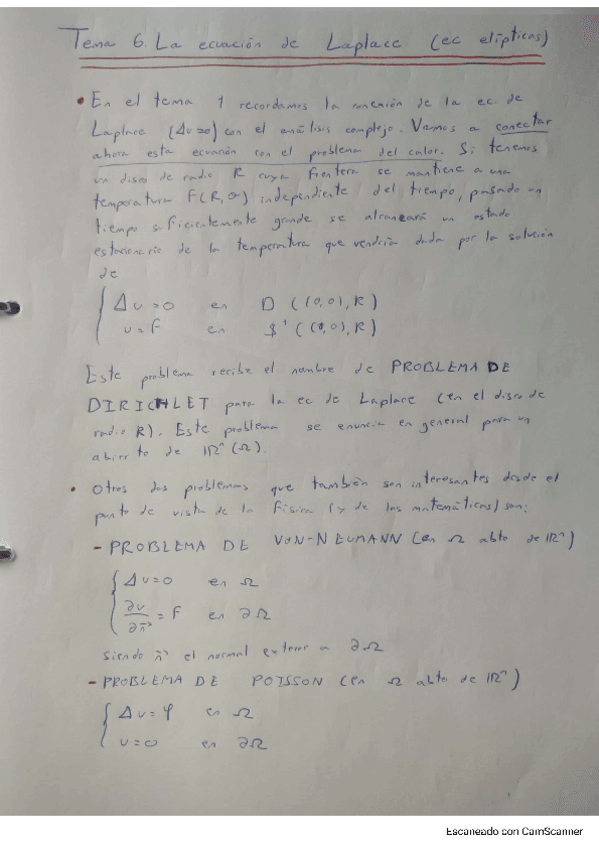 Tema 6. La ecuación de Laplace (ec elípticas)
• En el tema 1 recordamos la conexión de la ec. de
Laplace (Δu=0) con el análisis complejo. Vamos a conectar
ahora esta ecuación con el problema del calor. Si tenemos
un disco de radio R cuya frontera se mantiene a una
temperatura F(R,σ) independiente del tiempo, pasado un
tiempo suficientemente grande se alcanzará un estado
estacionario de la temperatura que vendría dada por la solución
de
Δu=0 en D((0,0),R)
u=F en S'((0,0),R)
Este problema recibe el nombre de PROBLEMA DE
DIRICHLET para la ec de Laplace (en el disco de
radio R). Este problema se enuncia en general para un
abierto de ℝⁿ(Ω).
• Otros dos problemas que también son interesantes desde el
punto de vista de la Física (y de las matemáticas) son:
- PROBLEMA DE VON-NEUMANN (en Ω abto de ℝⁿ)
Δu=0 en Ω
∂u/∂n⃗ = F en ∂Ω
siendo n⃗ el normal exterior a ∂Ω
- PROBLEMA DE POISSON (en Ω abto de ℝⁿ)
Δu=φ en Ω
u=0 en ∂Ω
Escaneado con CamScanner